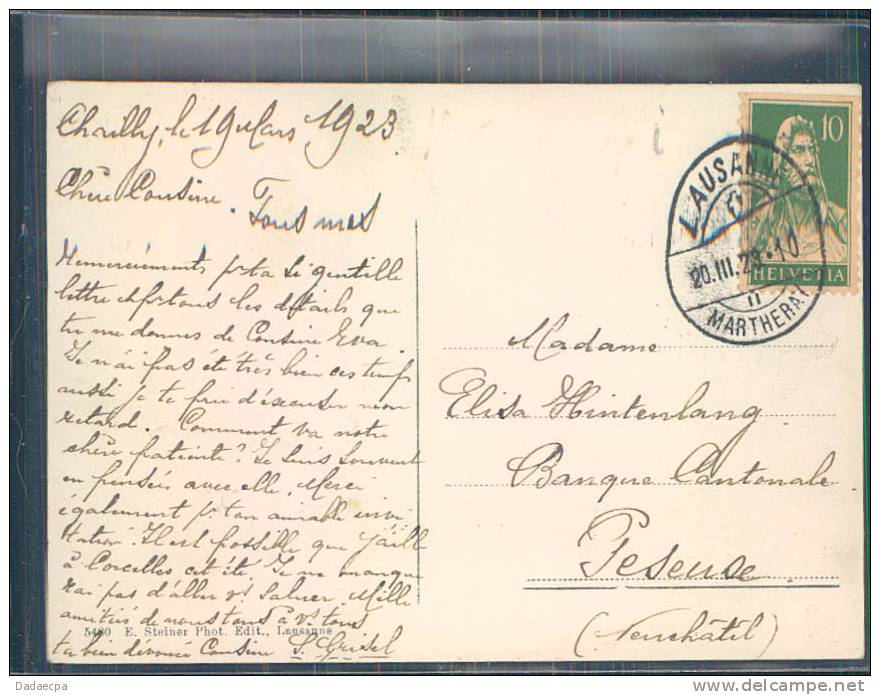 Chailly, le 19 Mars 1923
Chère Cousine. Tous mes
Remerciements pr ta si gentille
lettre et pr tous les détails que
tu me donnes de Cousine Eva.
Je n'ai pas été très bien ces temps
aussi je te prie d'excuser mon
retard. Comment va notre
chère patiente? Je suis souvent
en pensées avec elle. Merci
également pr ton aimable invi
tation. Il est possible que j'aille
à Corcelles cet été. Je ne manque
rai pas d'aller vs saluer. Mille
amitiés de nous tous à vs tous
ta bien dévouée Cousine S. Grisel
5480 E. Steiner Phot. Edit., Lausanne
10
HELVETIA
LAUSANNE
20.III.23.10
MARTHERAY
Madame
Elisa Hintenlang
Banque Cantonale
Peseux
(Neuchâtel)
Dadaecpa
www.delcampe.net